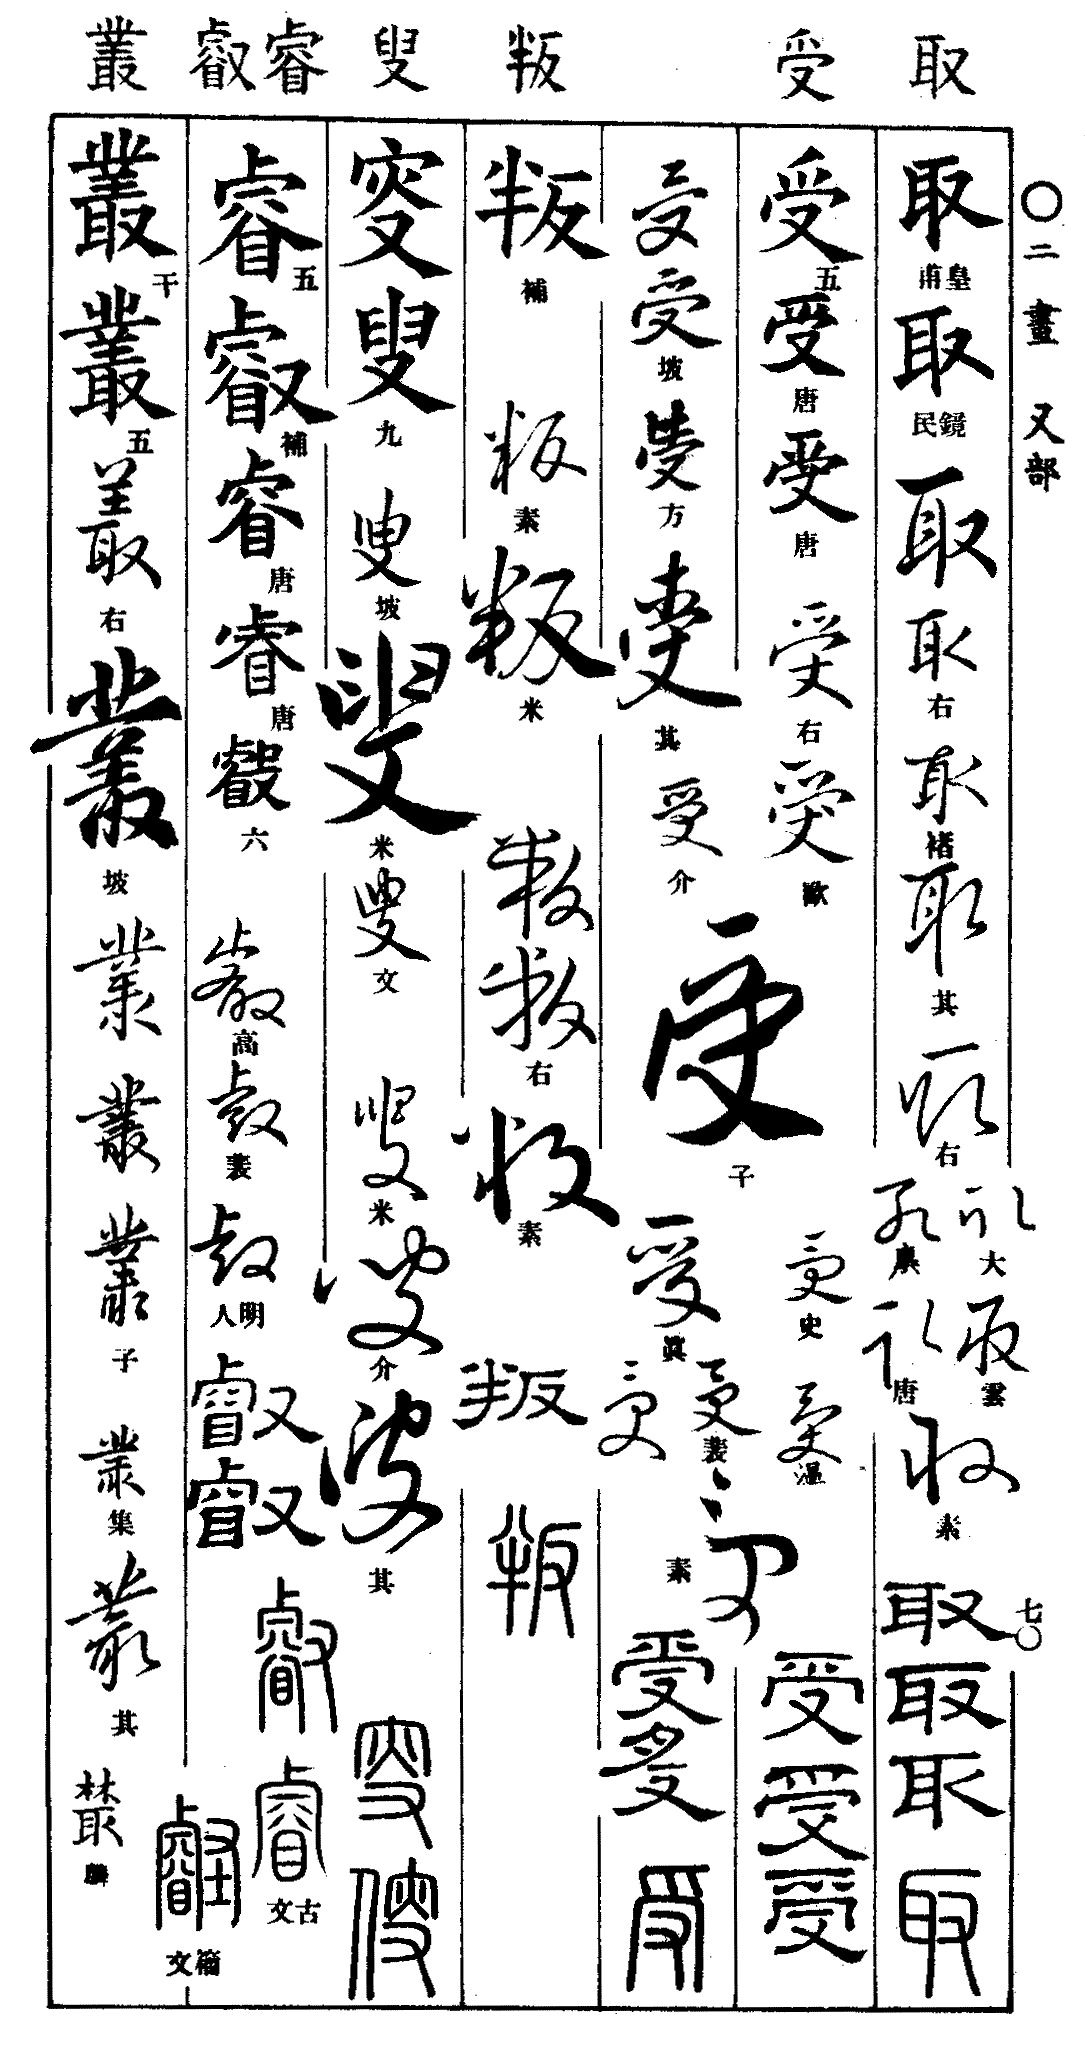 取
受
叛
叟
睿叡
叢
〇二畫 又部
七〇
取 皇甫
取 民鏡
取
取 右
取 褚
取 其
取 右
取 大
取
取 雲
取 唐
取 素
取
取
取
取
受 五
受 唐
受 唐
受 右
受 歐
受 史
受 溫
受
受
受
受
受 坡
受 方
受 其
受 介
受 子
受 眞
受
受 裴
受 素
受
受
受
叛 補
叛 素
叛 米
叛
叛 右
叛 素
叛
叛
叟
叟 九
叟 坡
叟 米
叟 文
叟 米
叟 介
叟 其
叟
叟
睿 五
叡 補
睿 唐
睿 唐
叡 六
叡 高
叡 裴
叡 明人
叡
叡
叡
睿 古文
叡 籀文
叢 干
叢 五
叢 右
叢 坡
叢
叢
叢 子
叢 集
叢 其
叢